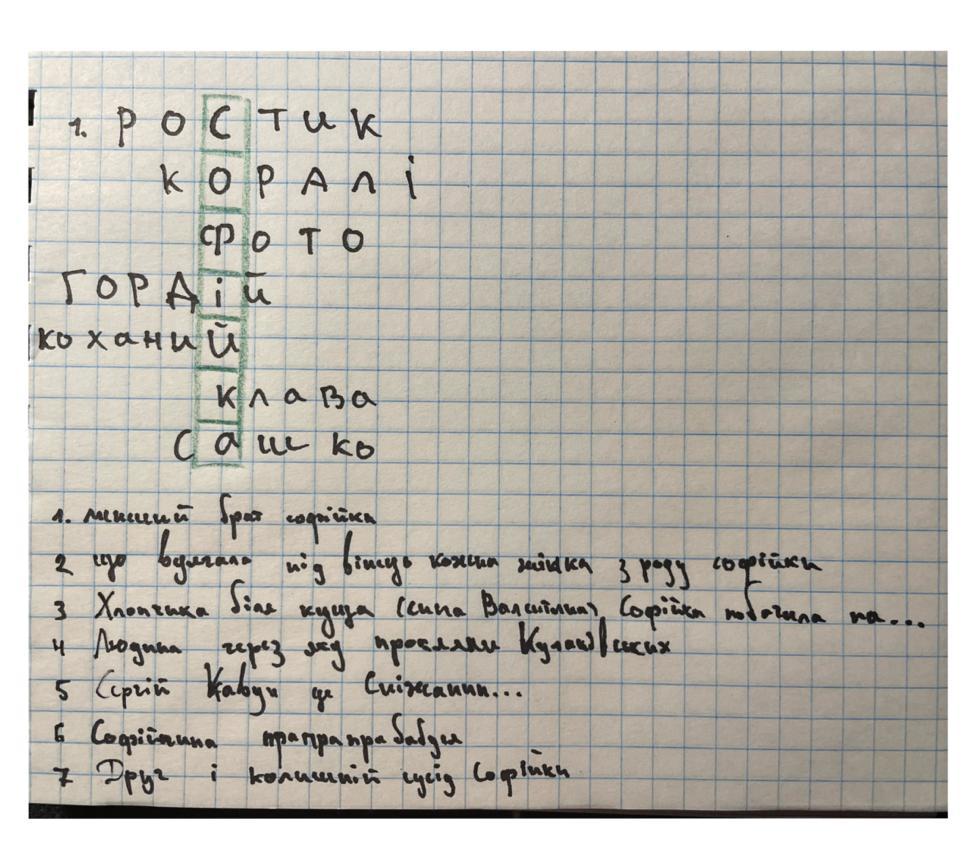 1. РОСТИК
КОРАЛІ
ФОТО
ГОРДІЙ
КОХАНИЙ
КЛАВА
САШКО
1. менший брат софійки
2 що вдягала під вінець кожна жінка з роду софійки
3 Хлопчика біля куща (сина Валентини) Софійка побачила на...
4 Людина через яку прокляли Кулаківських
5 Сергій Кавун це Сніжанин...
6 Софійчина прапрапрабабуся
7 Друг і колишній сусід Софійки